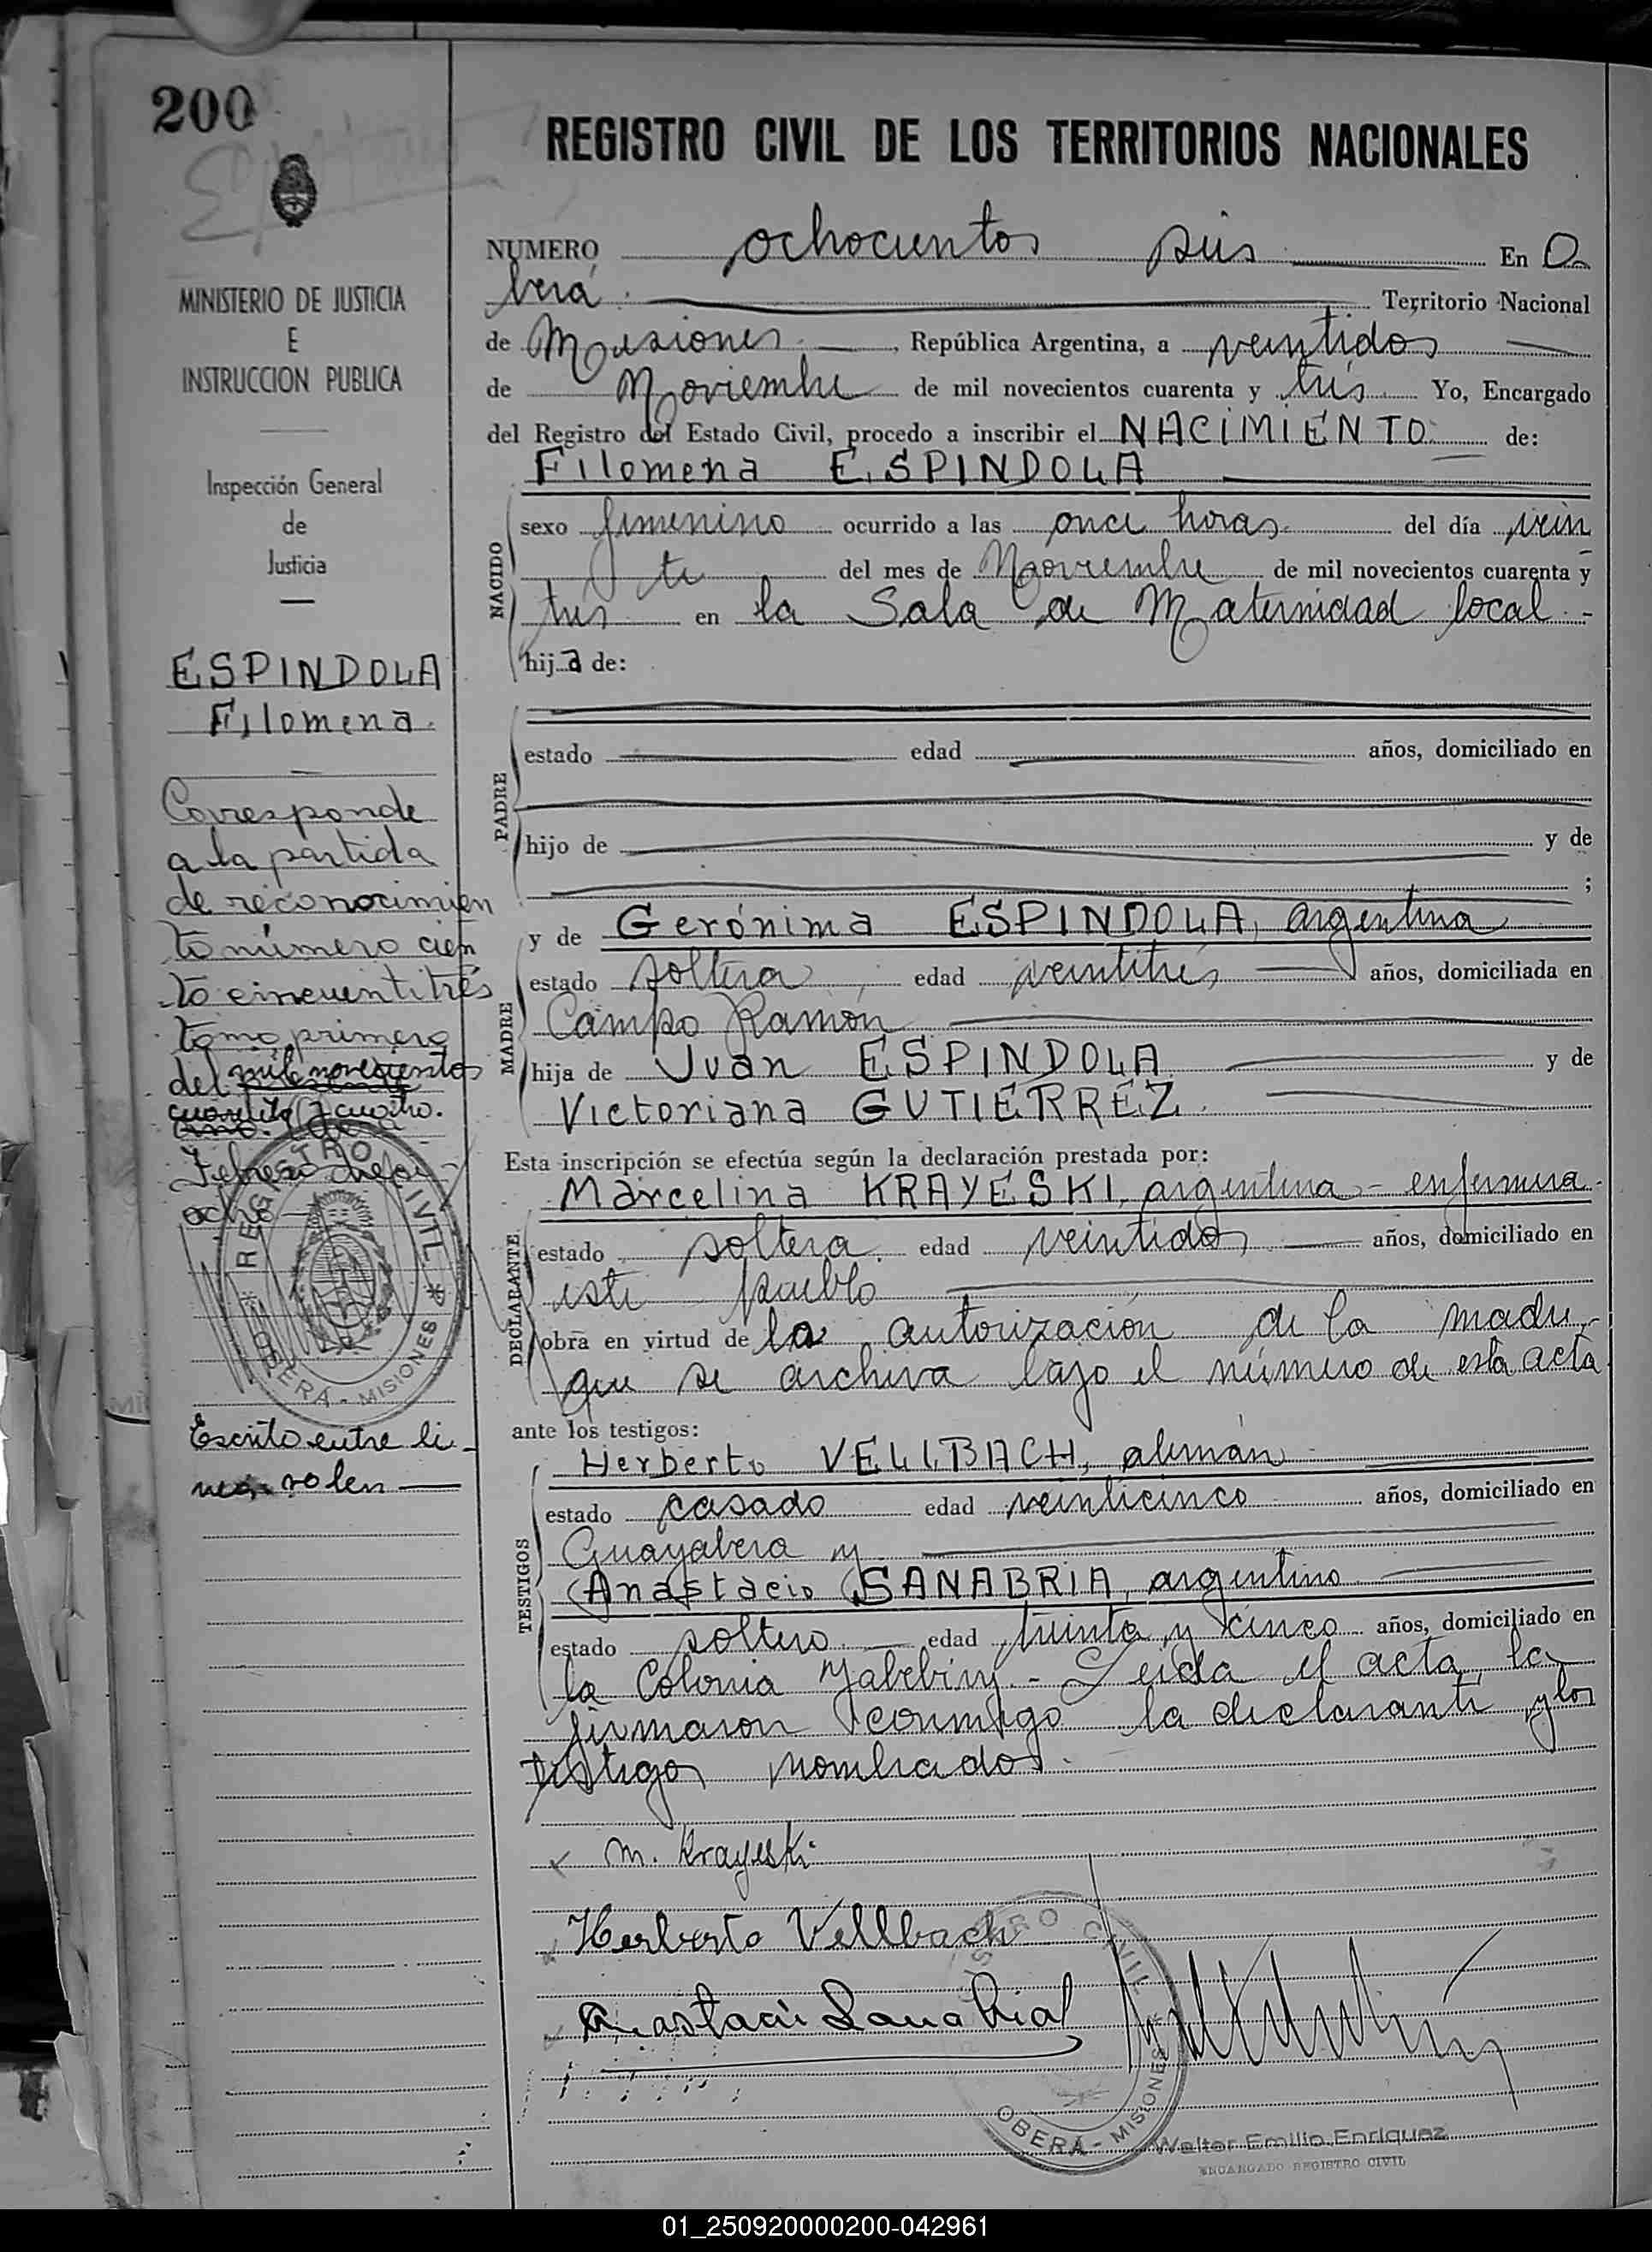 200
MINISTERIO DE JUSTICIA
E
INSTRUCCION PUBLICA
Inspección General
de
Justicia
ESPINDOLA
Filomena
Corresponde
a la partida
de reconocimien
to número cien
to cincuentitrés
tomo primero
del mil novecientos
cuarenta y cuatro.
Febrero
ocho
REGISTRO CIVIL
OBERÁ - MISIONES
Escrito entre li-
neas valen
REGISTRO CIVIL DE LOS TERRITORIOS NACIONALES
NUMERO ochocientos seis En O
berá. Territorio Nacional
de Misiones, República Argentina, a veintidos
de Noviembre de mil novecientos cuarenta y tres Yo, Encargado
del Registro del Estado Civil, procedo a inscribir el NACIMIENTO de:
Filomena ESPINDOLA
NACIDO
sexo femenino ocurrido a las once horas del día vein
te del mes de Noviembre de mil novecientos cuarenta y
tres en la Sala de Maternidad local.-
hija de:
PADRE
estado edad años, domiciliado en
hijo de y de
;
MADRE
y de Gerónima ESPINDOLA, argentina
estado soltera edad veintitrés años, domiciliada en
Campo Ramón
hija de Juan ESPINDOLA y de
Victoriana GUTIERREZ.
Esta inscripción se efectúa según la declaración prestada por:
DECLARANTE
Marcelina KRAYESKI, argentina - enfermera.
estado soltera edad veintidos años, domiciliado en
este pueblo
obra en virtud de la autorización de la madre,
que se archiva bajo el número de esta acta
ante los testigos:
TESTIGOS
Herberto VELLBACH, alemán
estado casado edad veinticinco años, domiciliado en
Guayabera y
Anastacio SANABRIA, argentino
estado soltero edad treinta y cinco años, domiciliado en
la Colonia Yabebiry.- Leida el acta, la
firmaron conmigo la declarante y los
testigos nombrados.
M. Krayeski
Herberto Vellbach
Anastacio Sanabria
REGISTRO CIVIL
OBERÁ - MISIONES
Walter Emilio Enriquez
ENCARGADO REGISTRO CIVIL
01_250920000200-042961